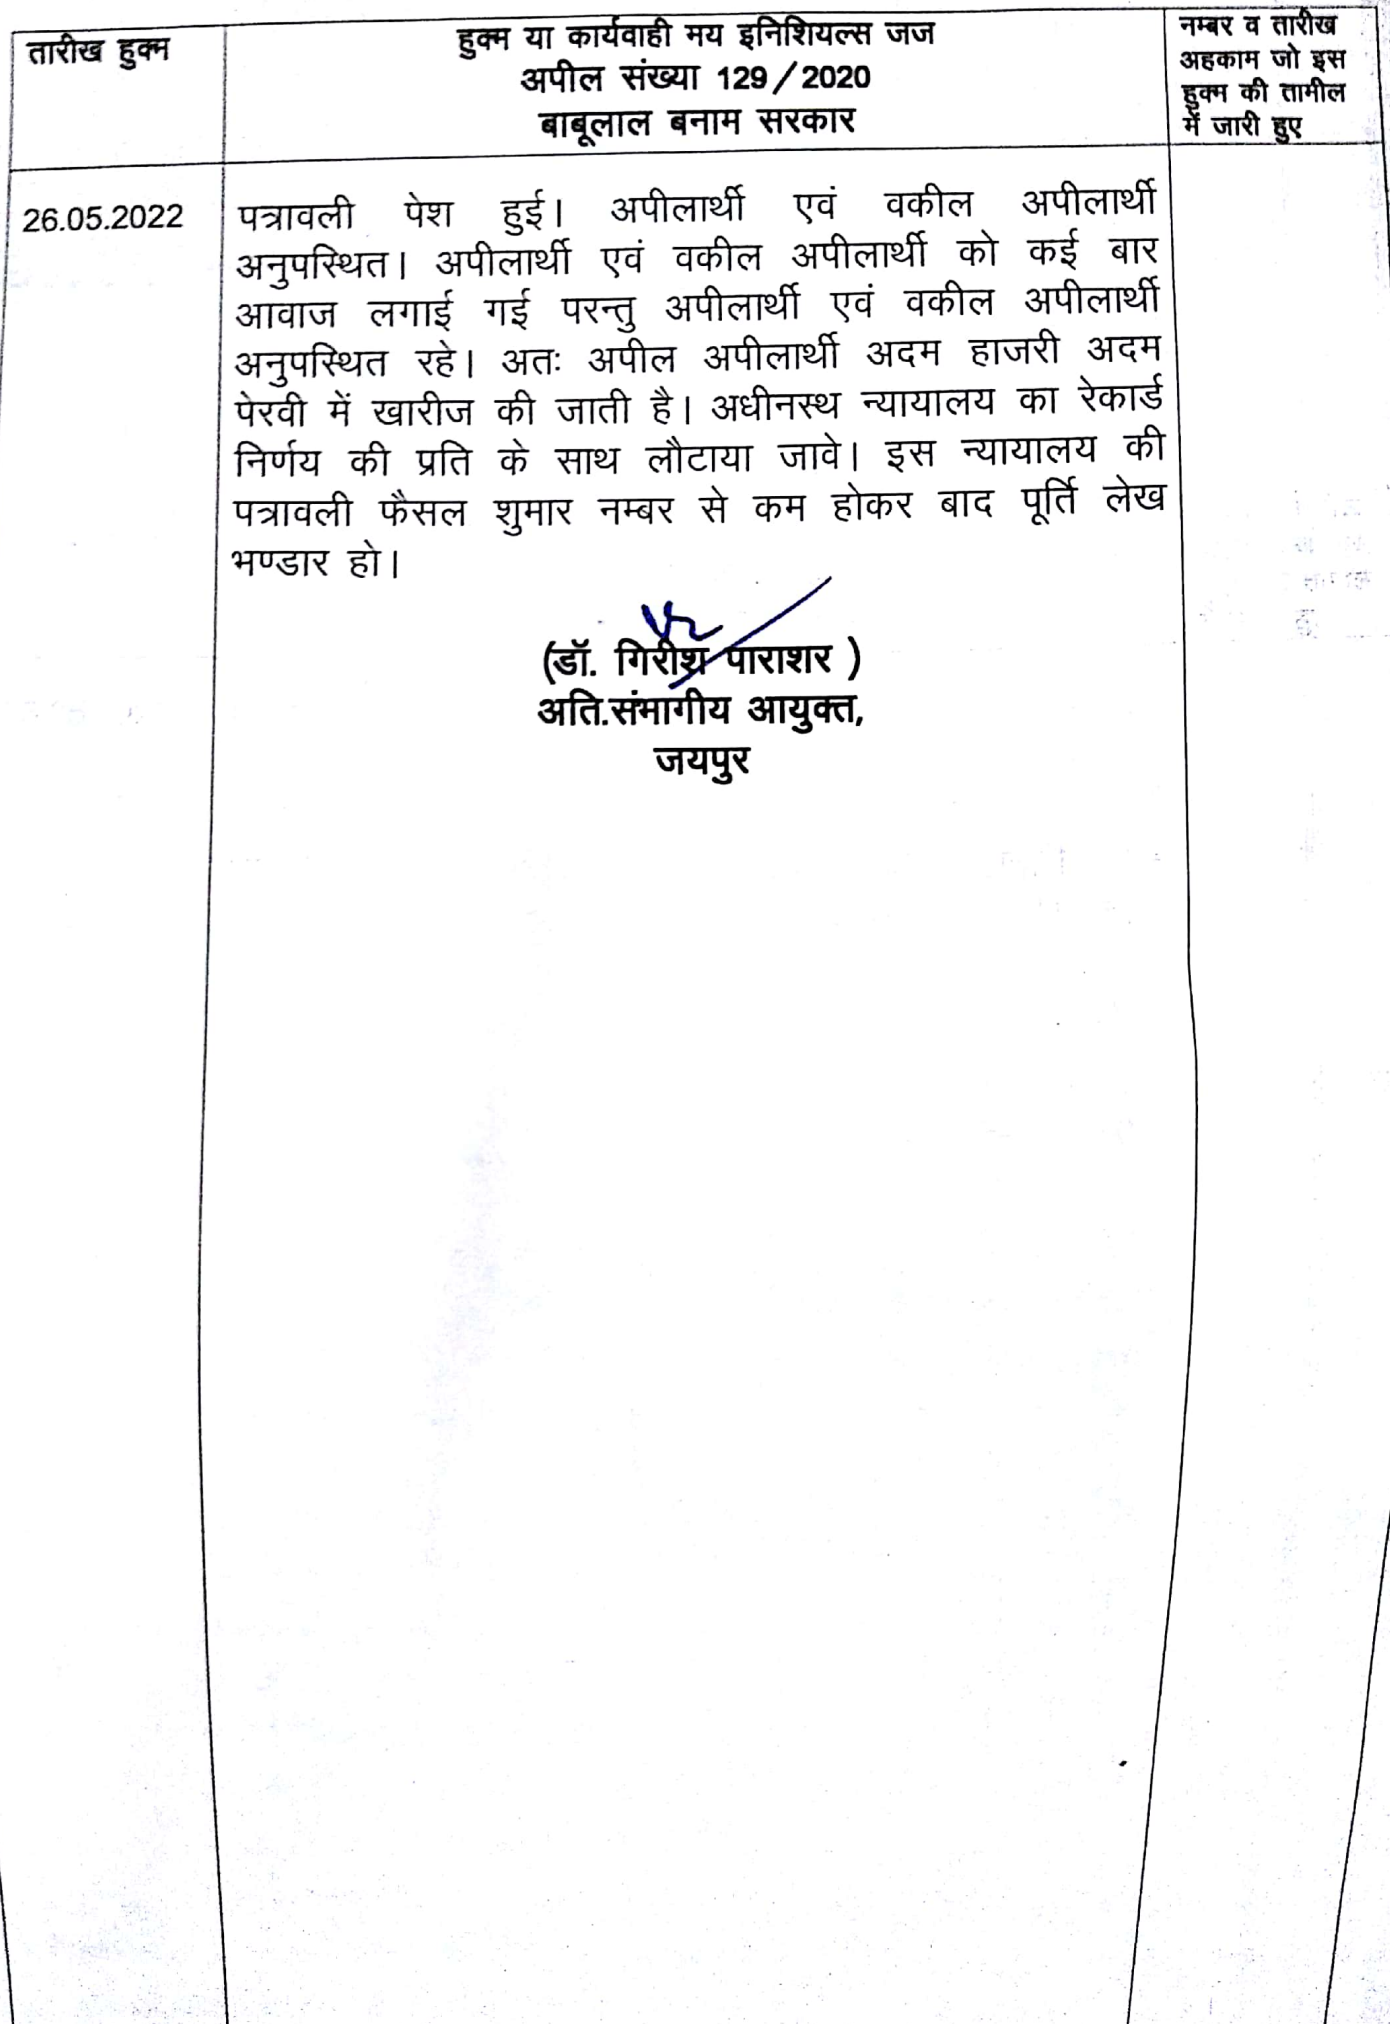 तारीख हुक्म
हुक्म या कार्यवाही मय इनिशियल्स जज
अपील संख्या 129/2020
बाबूलाल बनाम सरकार
नम्बर व तारीख
अहकाम जो इस
हुक्म की तामील
में जारी हुए
26.05.2022
पत्रावली पेश हुई। अपीलार्थी एवं वकील अपीलार्थी
अनुपस्थित। अपीलार्थी एवं वकील अपीलार्थी को कई बार
आवाज लगाई गई परन्तु अपीलार्थी एवं वकील अपीलार्थी
अनुपस्थित रहे। अतः अपील अपीलार्थी अदम हाजरी अदम
पेरवी में खारीज की जाती है। अधीनस्थ न्यायालय का रेकार्ड
निर्णय की प्रति के साथ लौटाया जावे। इस न्यायालय की
पत्रावली फैसल शुमार नम्बर से कम होकर बाद पूर्ति लेख
भण्डार हो।
(डॉ. गिरीश पाराशर )
अति.संमागीय आयुक्त,
जयपुर